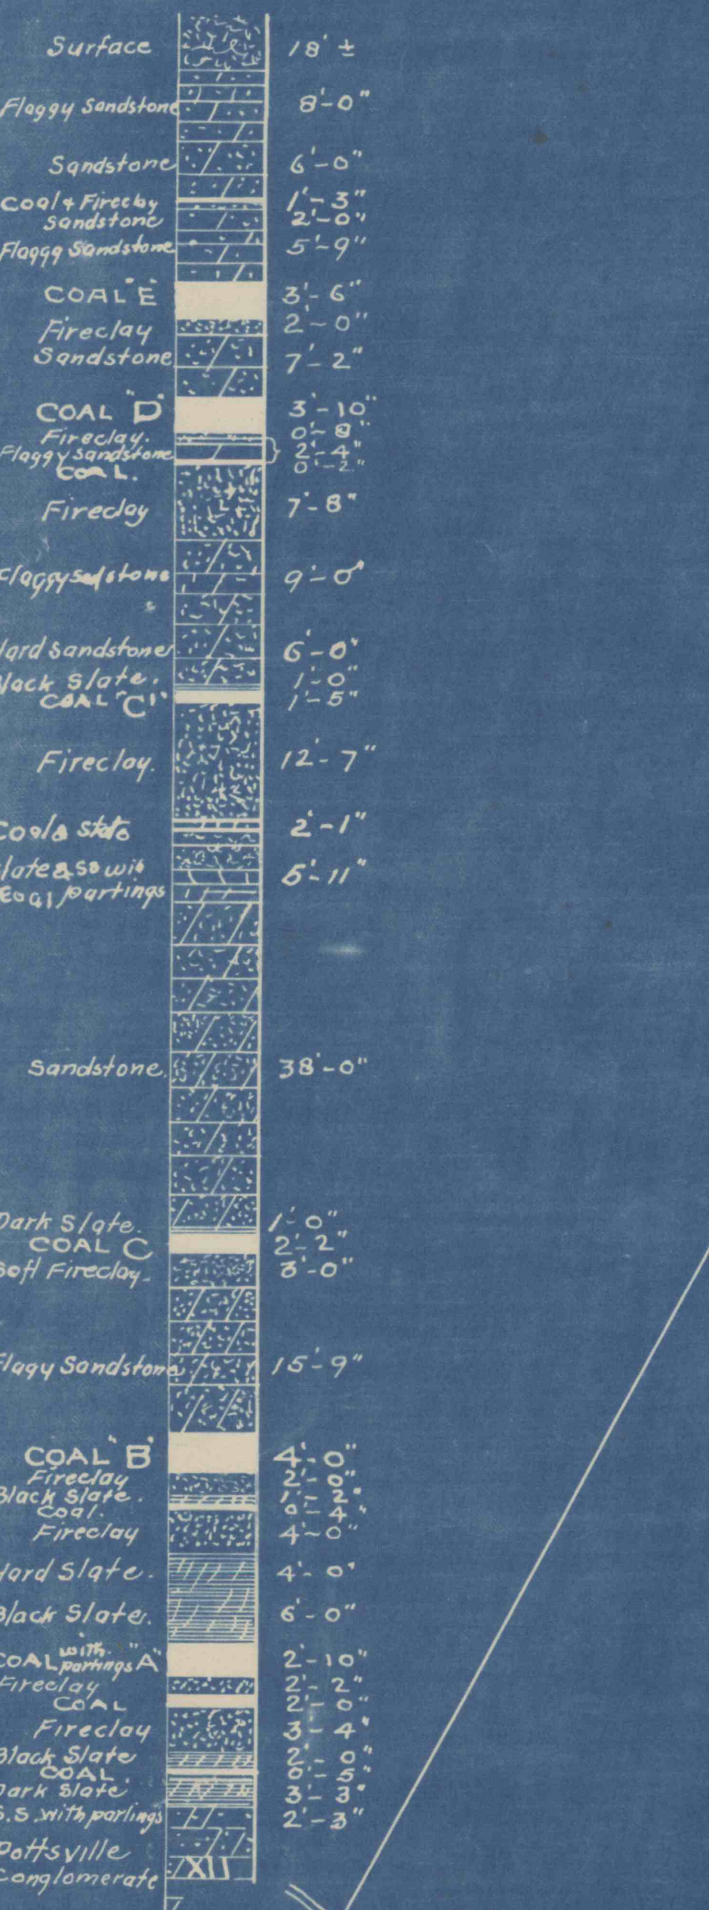 Surface 18' ±
Flaggy Sandstone 8'-0"
Sandstone 6'-0"
Coal & Fireclay 1'-3"
Sandstone 2'-0"
Flaggg Sandstone 5'-9"
COAL "E" 3'-6"
Fireclay 2'-0"
Sandstone 7'-2"
COAL "D" 3'-10"
Fireclay. 0'-8"
Flaggy Sandstone 2'-4"
COAL. 0'-2"
Fireclay 7'-8"
Flaggy 9'-0"
Hard Sandstone 6'-0"
Black Slate. 1'-0"
COAL "C'" 1'-5"
Fireclay. 12'-7"
Coal & 2'-1"
Slate & SS with 5'-11"
Coal partings
Sandstone. 38'-0"
Dark Slate. 1'-0"
COAL C 2'-2"
Soft Fireclay. 3'-0"
Flagy Sandstone 15'-9"
COAL "B" 4'-0"
Fireclay 2'-0"
Black Slate. 1'-2"
Coal. 0'-4"
Fireclay 4'-0"
Hard Slate. 4'-0"
Black Slate. 6'-0"
COAL with partings "A" 2'-10"
Fireclay 2'-2"
COAL 2'-0"
Fireclay 3'-4"
Black Slate 2'-0"
COAL 0'-5"
Dark Slate 3'-3"
S.S. with partings 2'-3"
Pottsville
Conglomerate XII